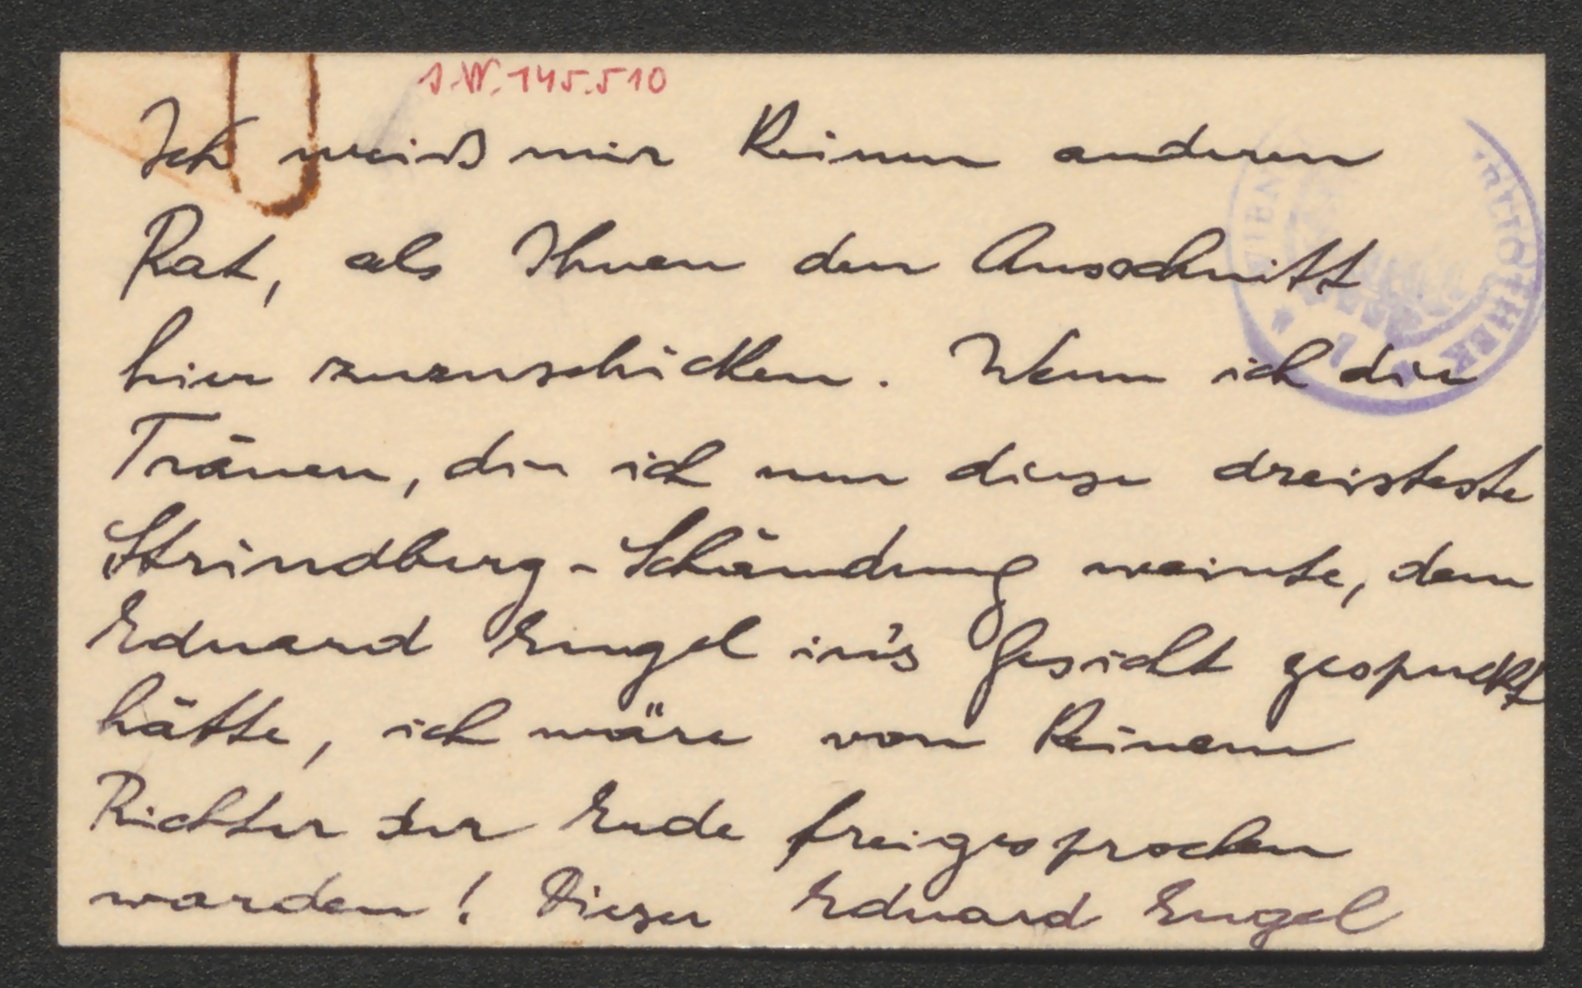 J.N. 145.510
Ich weiß mir keinen anderen
Rat, als Ihnen den Ausschnitt
hier zuzuschicken. Wenn ich die
Tränen, die ich um diese dreisteste
Strindberg-Schändung weinte, dem
Eduard Engel in's Gesicht gespuckt
hätte, ich wäre von keinem
Richter der Erde freigesprochen
worden! Dieser Eduard Engel
WIEN
BIBLIOTHEK